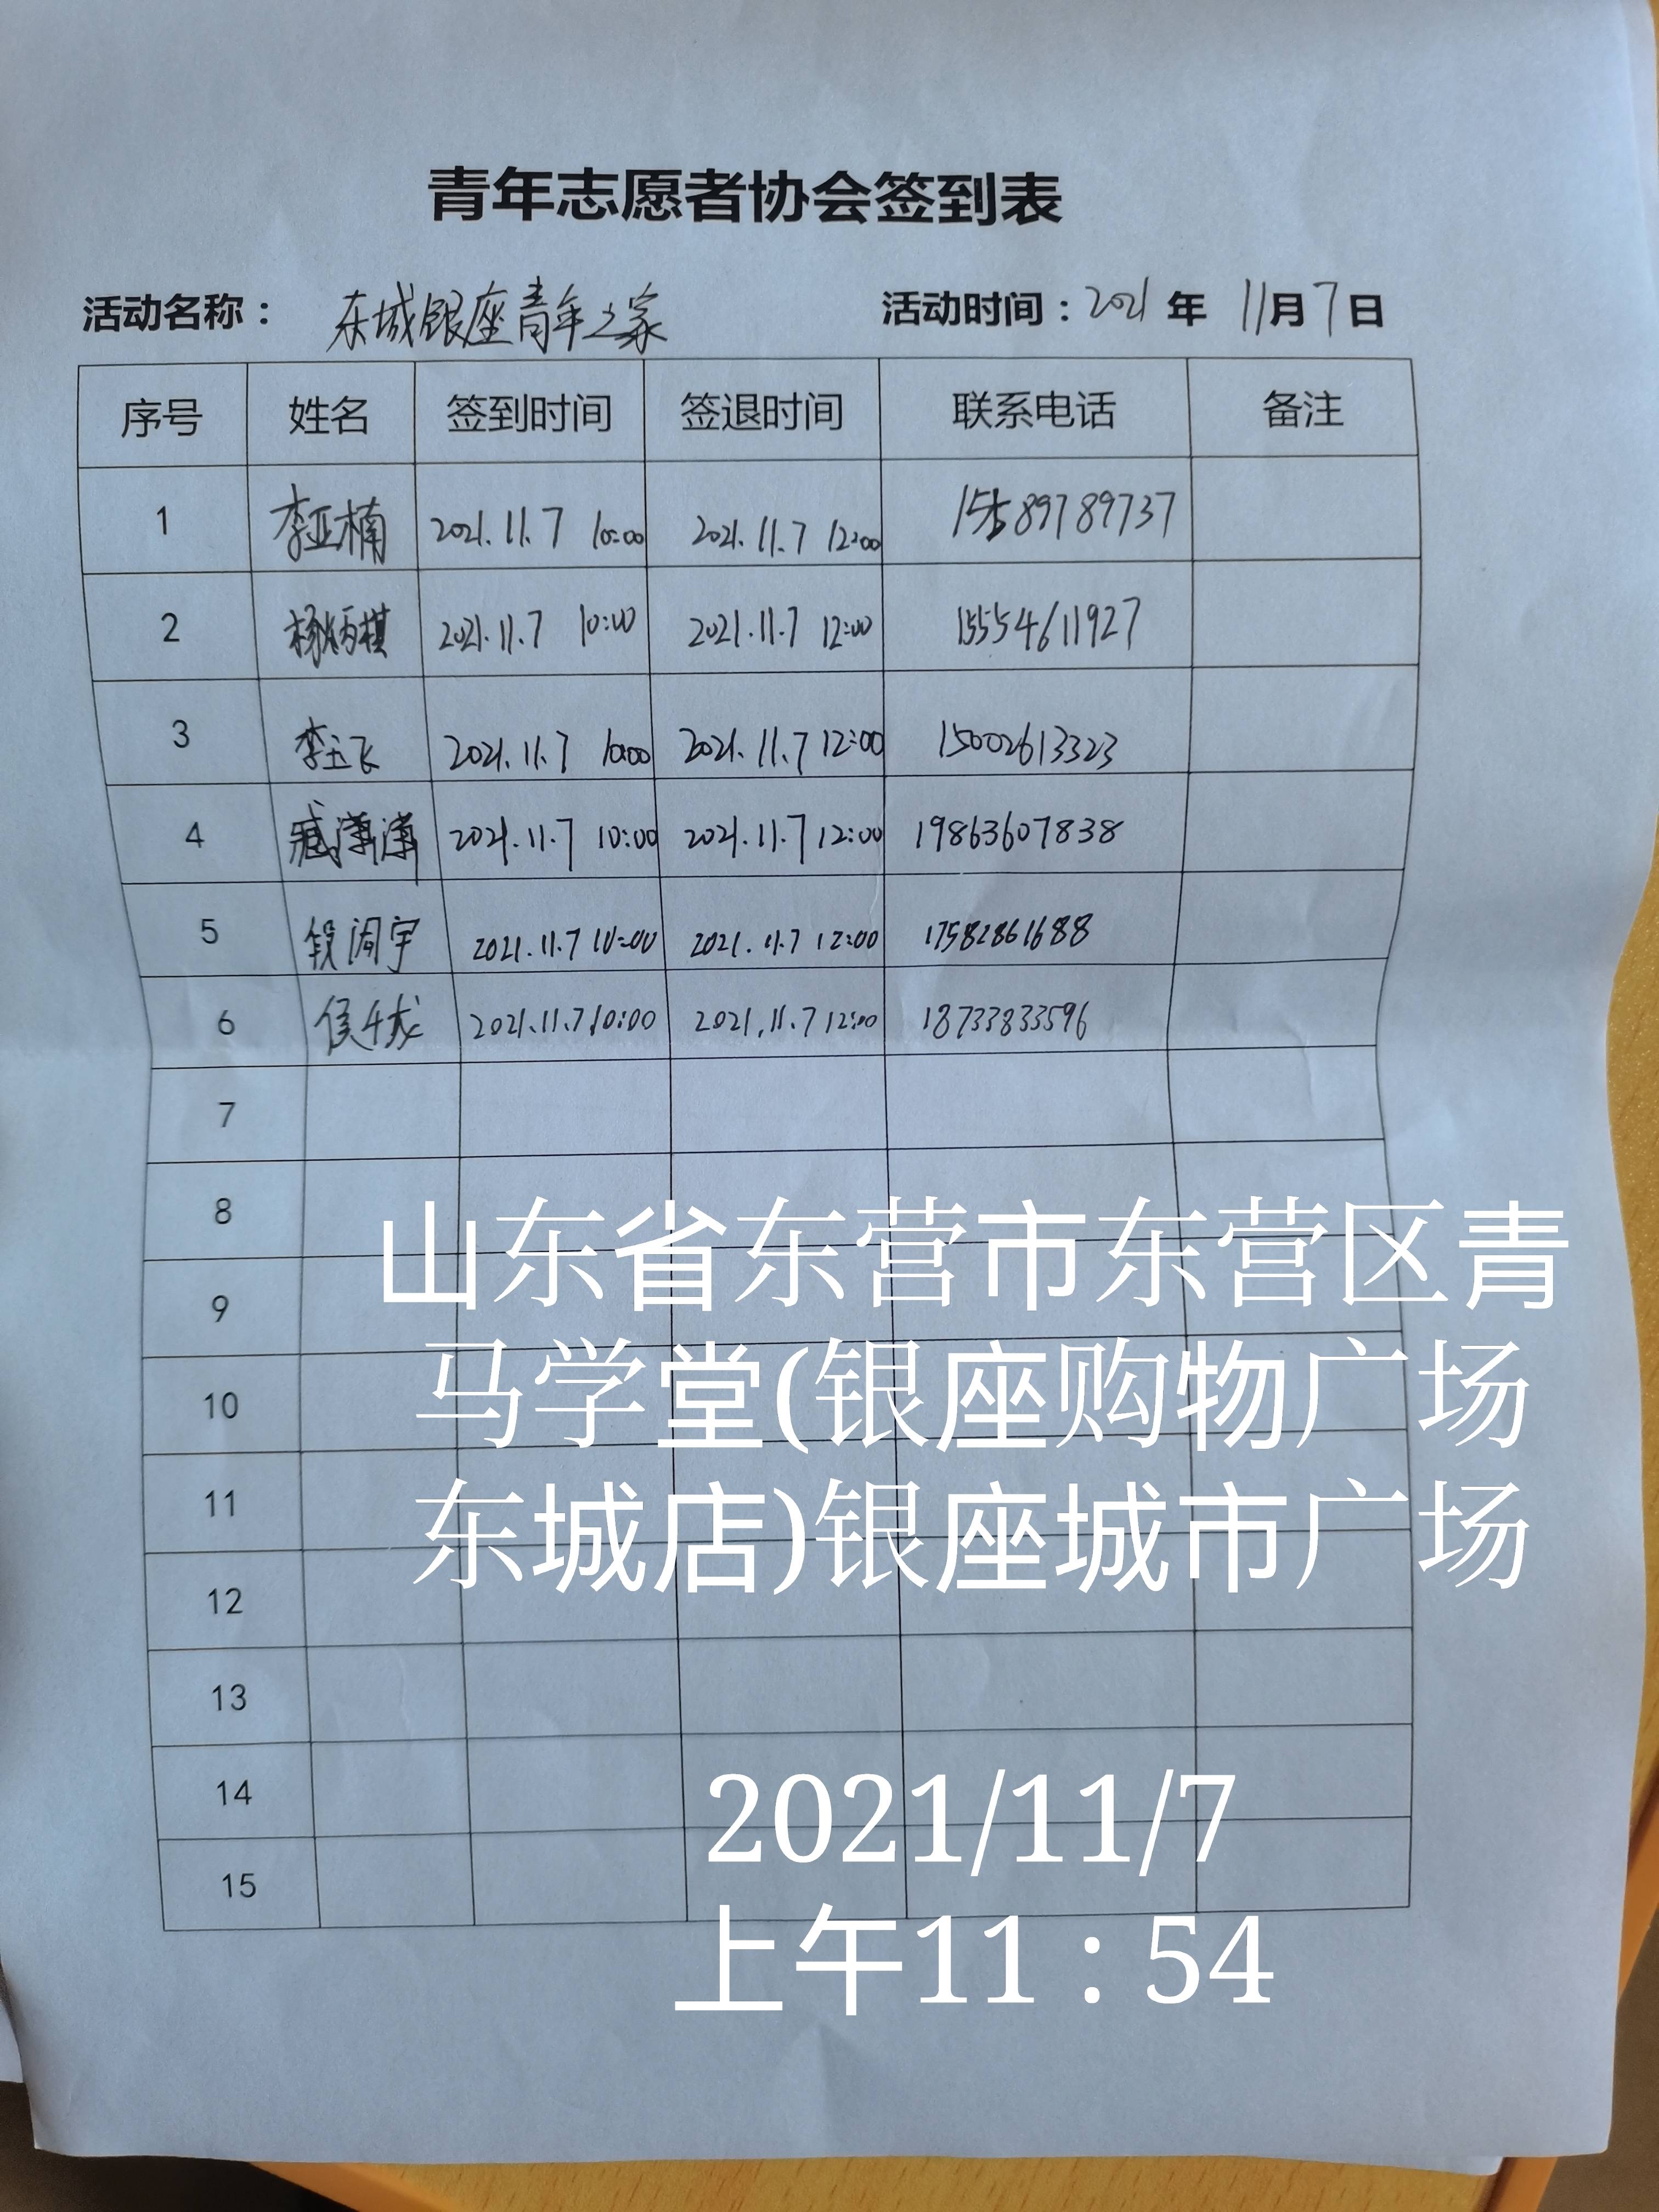 青年志愿者协会签到表
活动名称：东城银座青年之家 活动时间：2021年 11月7日
序号 姓名 签到时间 签退时间 联系电话 备注
1 李亚楠 2021.11.7 10:00 2021.11.7 12:00 15589789737
2 杨炳棋 2021.11.7 10:00 2021.11.7 12:00 15554611927
3 李玉飞 2021.11.7 10:00 2021.11.7 12:00 15002613323
4 臧潇潇 2021.11.7 10:00 2021.11.7 12:00 19863607838
5 段闰宇 2021.11.7 10:00 2021.11.7 12:00 17582861688
6 侯千龙 2021.11.7 10:00 2021.11.7 12:00 18733833596
7
8
9
10
11
12
13
14
15
山东省东营市东营区青
马学堂(银座购物广场
东城店)银座城市广场
2021/11/7
上午11：54